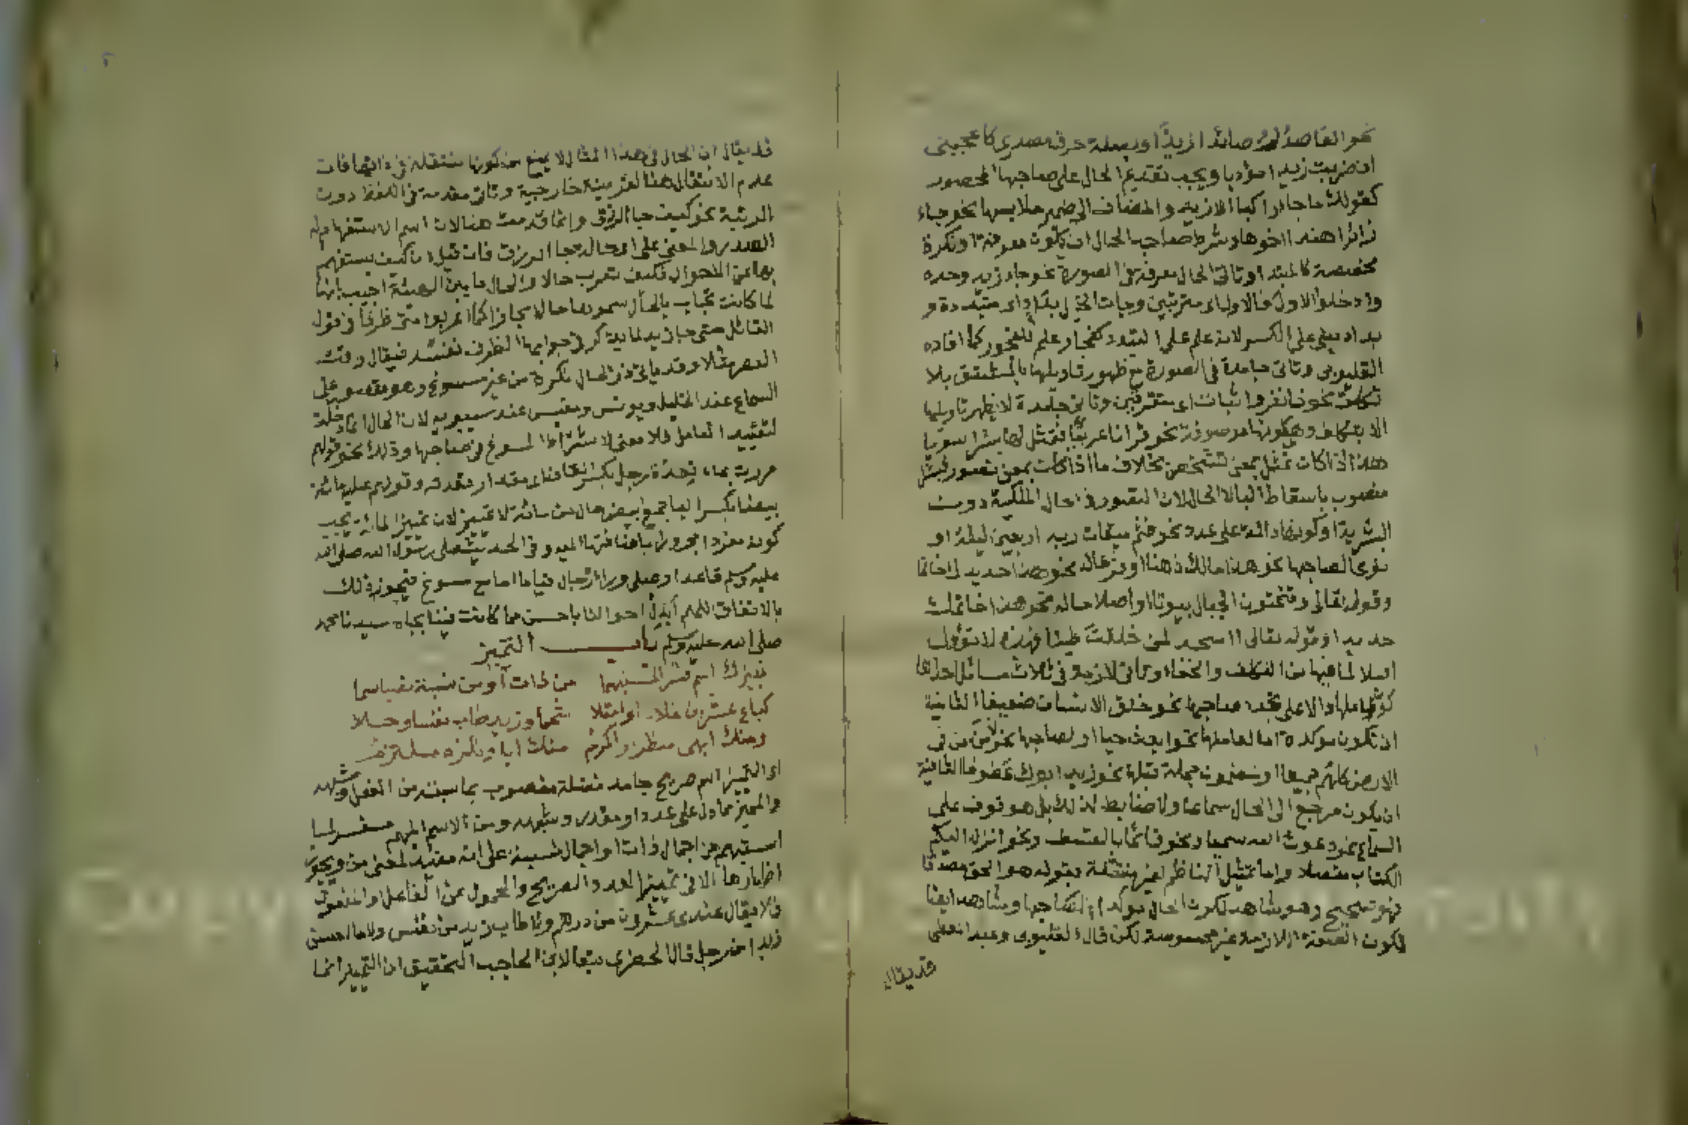 نحو القاصد لهو صائدا زيدا او بصلة حرف مصدري كاعجبني
ان ضربت زيدا مؤدبا ويجب تقديم الحال على صاحبها المحصور
كقولك ما جا راكبا الا زيد والمضاف الى ضمير ملابسها نحو جاء
زائرا هندا اخوها وشرط صاحب الحال ان يكون معرفة او نكرة
مخصصة كالمبتدا وتاتي الحال معرفة في الصورة نحو جاء زيد وحده
وادخلوا الاول فالاول اي مترتبين وجات الخيل بداد اي متبددة و
بداد مبني على الكسر لانه علم على التبدد كفجار علم للفجور كما افاده
القليوبي وتاتي جامدة في الصورة مع ظهور تاويلها بالمشتق بلا
تكلف نحو فانفروا ثبات اي متفرقين وتاتي جامدة لا يظهر تاويلها
الا بتكلف وهي كونها موصوفة نحو قرانا عربيا فتمثل لها بشرا سويا
هذا اذا كان تمثل بمعنى تشخص بخلاف ما اذا كان بمعنى تصور فبشرا
منصوب باسقاط البا لا الحال لان التصور في حال الملكية دون
البشرية او كونها دالة على عدد نحو فتم ميقات ربه اربعين ليلة او
نوع لصاحبها نحو هذا مالك ذهبا او فرعا له نحو هذا حديدك خاتما
وقوله تعالى وتنحتون الجبال بيوتا او اصلا له نحو هذا خاتمك
حديدا وقوله تعالى ااسجد لمن خلقت طينا فهذه لا تؤول
اصلا لما فيها من التكلف والخفاء وتاتي لازمة في ثلاث مسائل احداها
كون عاملها دالا على تجدد صاحبها نحو خلق الانسان ضعيفا الثانية
ان تكون مؤكدة اما لعاملها نحو ابعث حيا او لصاحبها نحو لآمن من في
الارض كلهم جميعا او مضمون جملة قبلها نحو زيد ابوك عطوفا الثالثة
ان يكون مرجع الى الحال سماعا ولا ضابط لذلك بل هو موقوف على
السماع نحو دعوت الله سميعا ونحو قائما بالقسط ونحو انزل اليكم
الكتاب مفصلا واما تمثيل الناظم لغير منتقلة بقوله هو الحق مصدقا
فهو صحيح وهو شاهد لكون الحال مؤكدا لصاحبها وشاهد ايضا
لكون الصفة اللازمة غير محسوسة لكن قال القليوبي وعبد المعطي
قد يقال
قد يقال ان الحال في هذا المثال لا يمنع من كونها منتقلة في ذاتها فان
عدم الانتقال هنا لقرينة خارجية وتاتي مقدمة في اللفظ دون
الرتبة نحو كيف جا الرزق وانما قدمت هنا لان اسم الاستفهام له
الصدر والمعنى على اي حالة جا الرزق فان قيل ان كيف يستفهم
بها عن الاحوال فكيف تعرب حالا والحال ما يبين الهيئة اجيب بانها
لما كانت تجاب بالحال سموها حالا مجازا كما اعربوا متى ظرفا في قول
القائل متى جا زيد لما يذكر في جوابها الظرف نفسه فيقال وقت
العصر مثلا وقد ياتي ذو الحال نكرة من غير مسوغ وهو مقصور على
السماع عند الخليل ويونس ومقيس عند سيبويه لان الحال انما دخلت
لتقييد العامل فلا معنى لاشتراط المسوغ في صاحبها وذلك نحو قولهم
مررت بماء قعدة رجل بكسر القاف اي مقدار مقعدته وقولهم عليه مائة
بيضا بكسر البا جمع ابيض حال من مائة لا تمييز لان تمييز المائة يجب
كونه مفردا مجرورا باضافتها اليه وفي الحديث صلى رسول الله صلى الله
عليه وسلم قاعدا وصلى وراءه رجال قياما اما مع مسوغ فيجوز ذلك
بالاتفاق اللهم ابدل احوالنا باحسن مما كانت فينا بجاه سيدنا محمد
صلى الله عليه وسلم باب التمييز
تمييزك اسم فسر المستبهما من ذات او من نسبة تقياسما
كباع عشرين غلاما وامتلا شحما وزيد طاب نفسا وحلا
ومنك ابهى منظر واكرم منك ابا وتنكيره ملتزم
اي التمييز اسم صريح جامد فضلة منصوب بما سبقه من الفعل وشبهه
والمميز مما دل على عدد او مقدر وشبهه ومن الاسم المبهم مفسر لما
استبهم من اجمال ذات او اجمال نسبة على انه مفيد لمعنى من ويجوز
اظهارها الا في تمييز العدد الصريح والمحول عن الفاعل والمفعول
فلا يقال عندي عشرون من درهم ولا طاب زيد من نفس ولا ما احسن
زيدا من رجل قال الخضري تبعا لابن الحاجب التحقيق ان التمييز انما